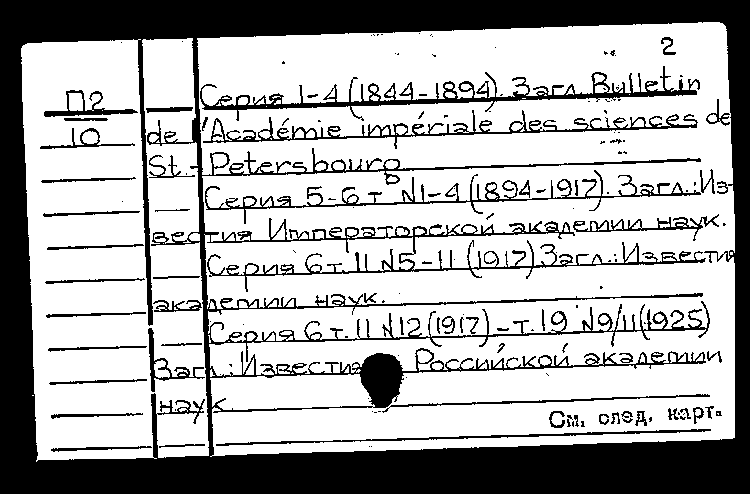 2
П2 Серия 1-4 (1844-1894). Загл. Bulletin
10 de l'Académie impériale des sciences de
St.-Petersbourg
Серия 5-6 т N1-4 (1894-1917). Загл.: Из-
вестия Императорской академии наук.
Серия 6 т. 11 N5-11 (1917). Загл.: Известия
академии наук.
Серия 6 т. 11 N12 (1917) - т. 19 N9/11 (1925)
Загл.: Известия Российской академии
наук.
См. след. карт.